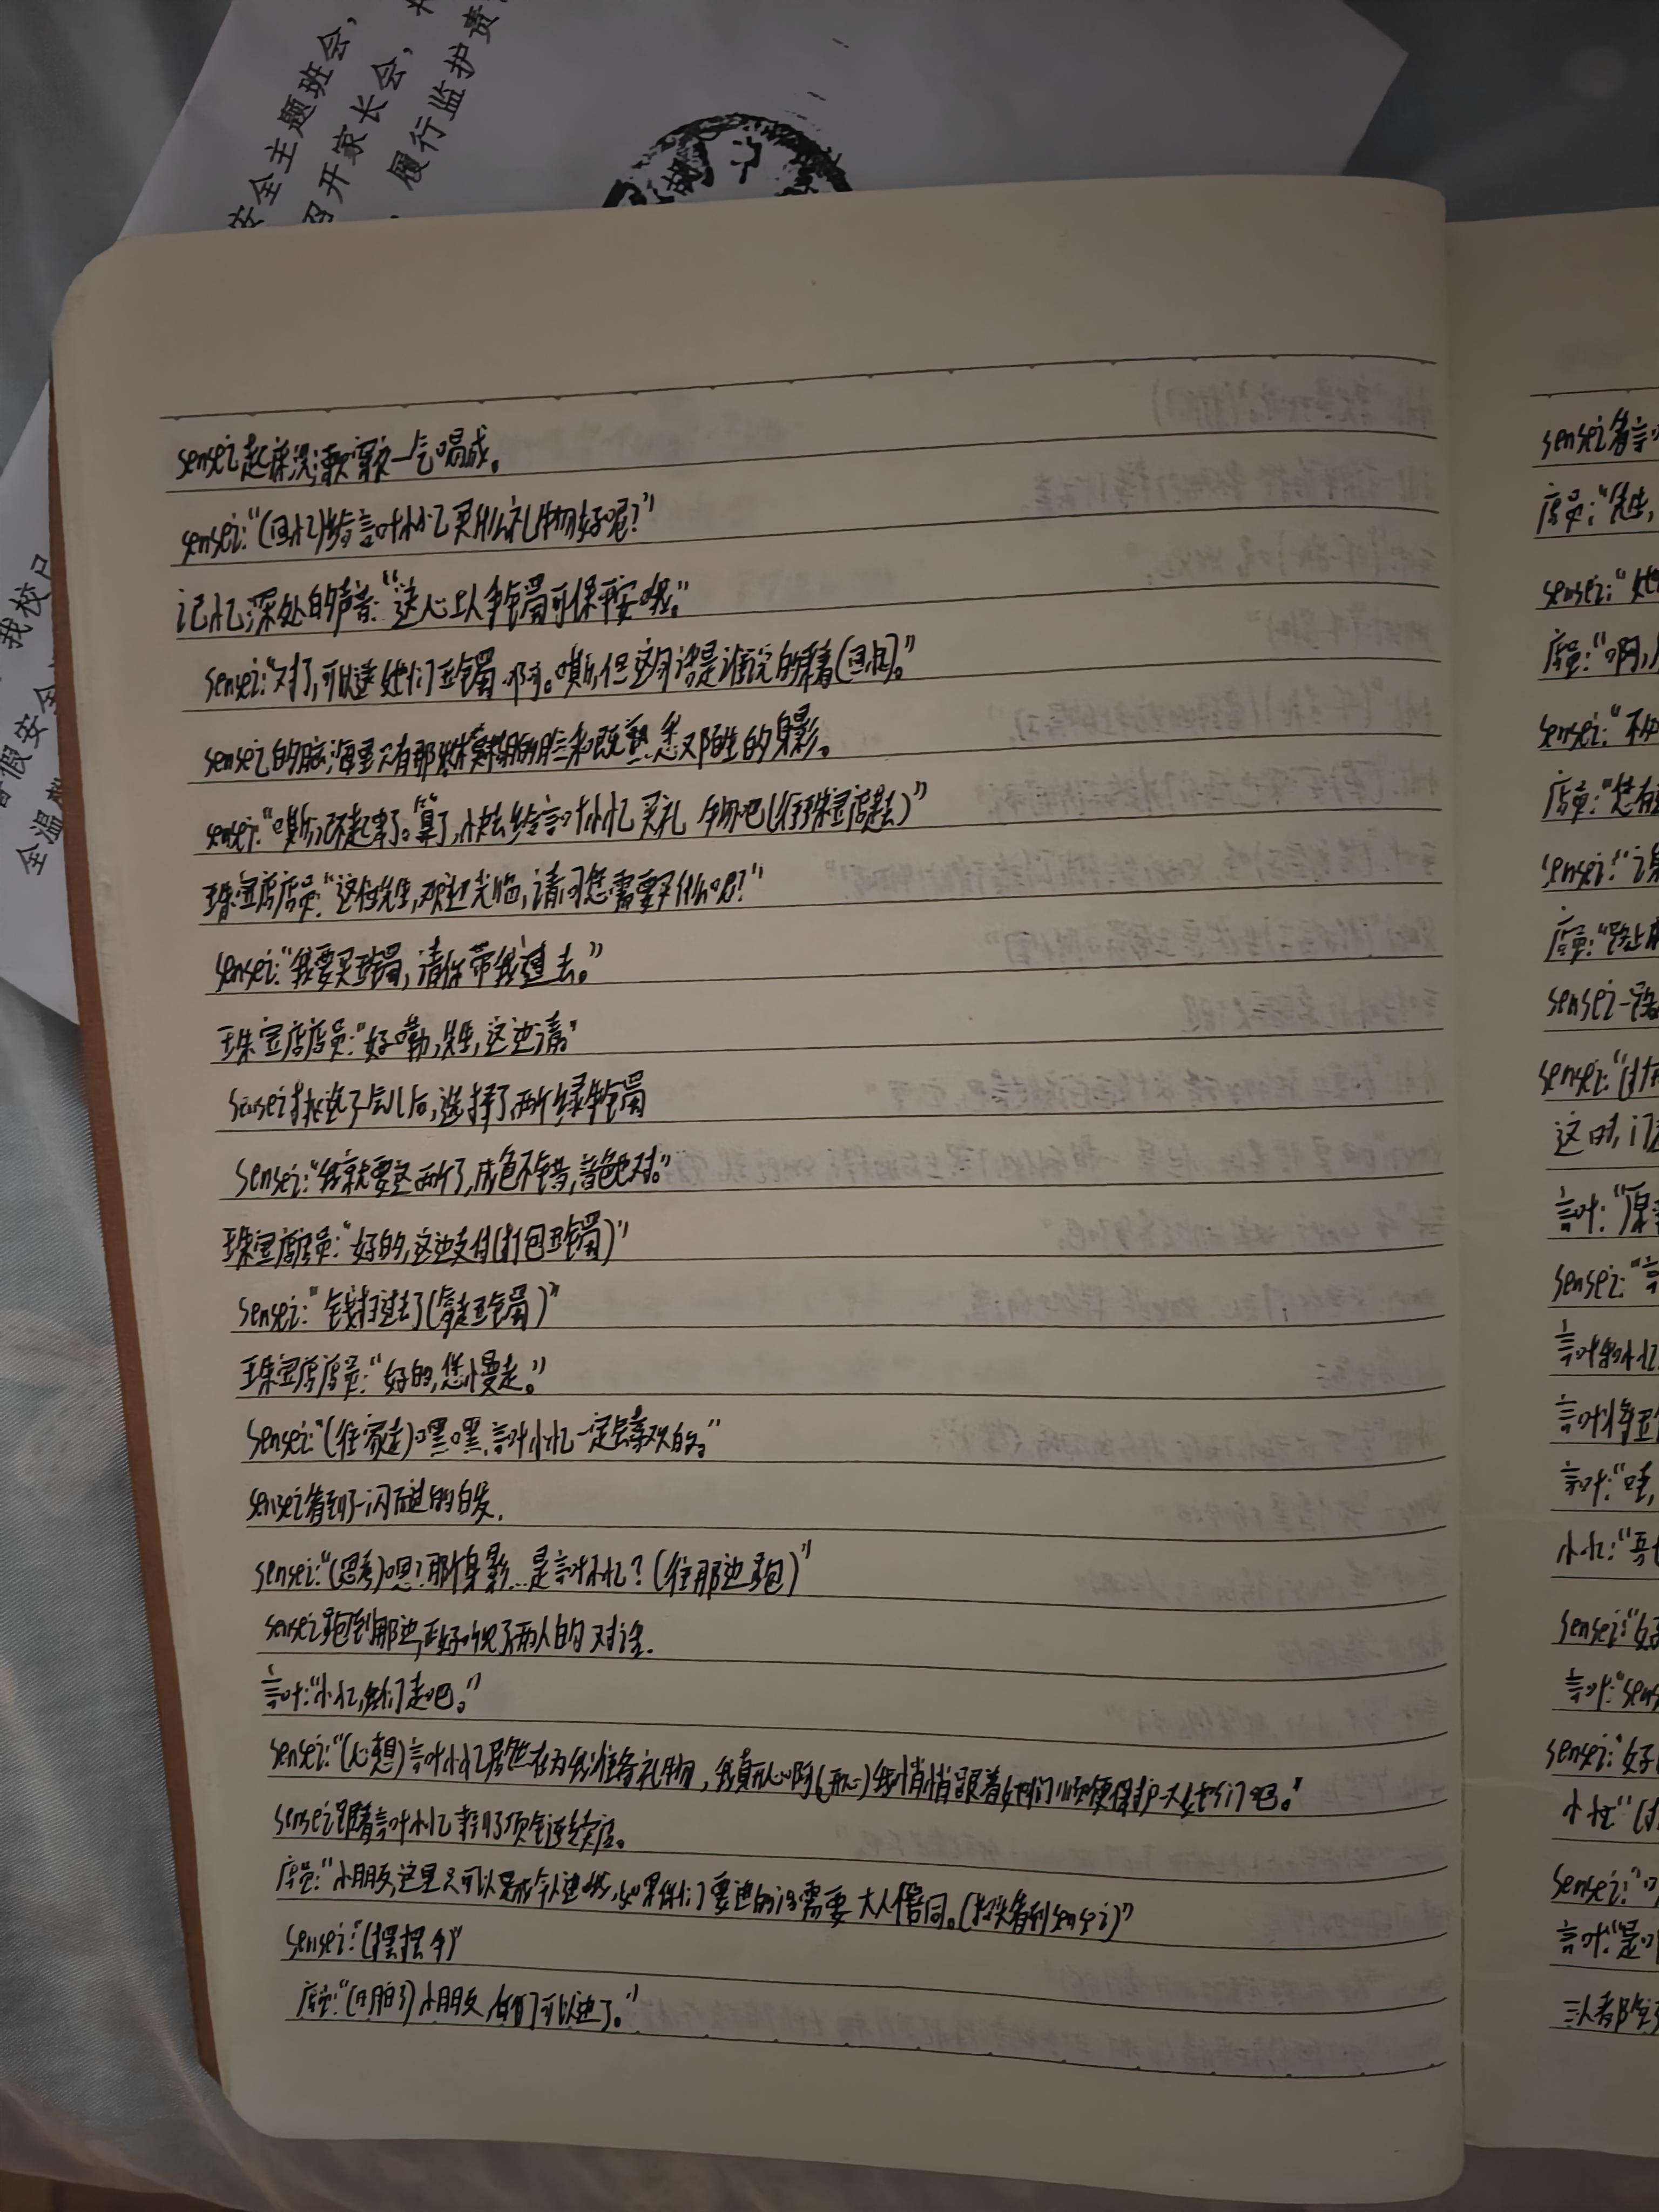 安全主题班会,
召开家长会,
,履行监护责
我校
假安全
全温
sensei起床洗漱穿衣一气呵成。
sensei:“(回忆)给言叶小忆买什么礼物好呢?”
记忆深处的声音:“送心上人手镯可保平安哦。”
sensei:“对了,可以送她们玉镯啊。嘶,但这句话是谁说的来着(回忆)。”
sensei的脑海里只有那张模糊的脸和既熟悉又陌生的身影。
sensei:“嘶,记不起来了。算了,快去给言叶小忆买礼物吧(往珠宝店赶)”
珠宝店店员:“这位先生,欢迎光临,请问您需要买什么呢?”
sensei:“我要买玉镯,请你带我过去。”
珠宝店店员:“好嘞,先生,这边请。”
sensei挑选了一会儿后,选择了两个绿手镯
sensei:“我就要这两个了,成色不错,音色也对。”
珠宝店店员:“好的,这边支付(打包玉镯)”
sensei:“钱扫过去了(拿起玉镯)”
珠宝店店员:“好的,您慢走。”
sensei:“(往家走)嘿嘿,言叶小忆一定会喜欢的。”
sensei看到了一闪而过的白发.
sensei:“(思考)嗯?那个身影...是言叶小忆?(往那边跑)”
sensei跑到那边,正好听见了两人的对话.
言叶:“小忆,我们走吧。”
sensei:“(心想)言叶小忆居然在为我准备礼物,我真开心啊(开心)我悄悄跟着她们顺便保护一下她们吧。”
sensei跟着言叶小忆来到了项链专卖店。
店员:“小朋友,这里只可以成年人进哦,如果你们要进的话需要大人陪同。(抬头看到sensei)”
sensei:“(摆摆手)”
店员:“(明白了)小朋友,你们可以进了。”
sensei看言
店员:“先生,
sensei:“她
店员:“啊,
sensei:“不
店员:“您有
sensei:“
店员:“路上
sensei一路
sensei:“
这时,门
言叶:“原
sensei:“言
言叶和小忆
言叶将玉
言叶:“哇,
小忆:“
sensei:“好
言叶:“sens
sensei:“好
小忆:“
sensei:“
言叶:“是
三人都